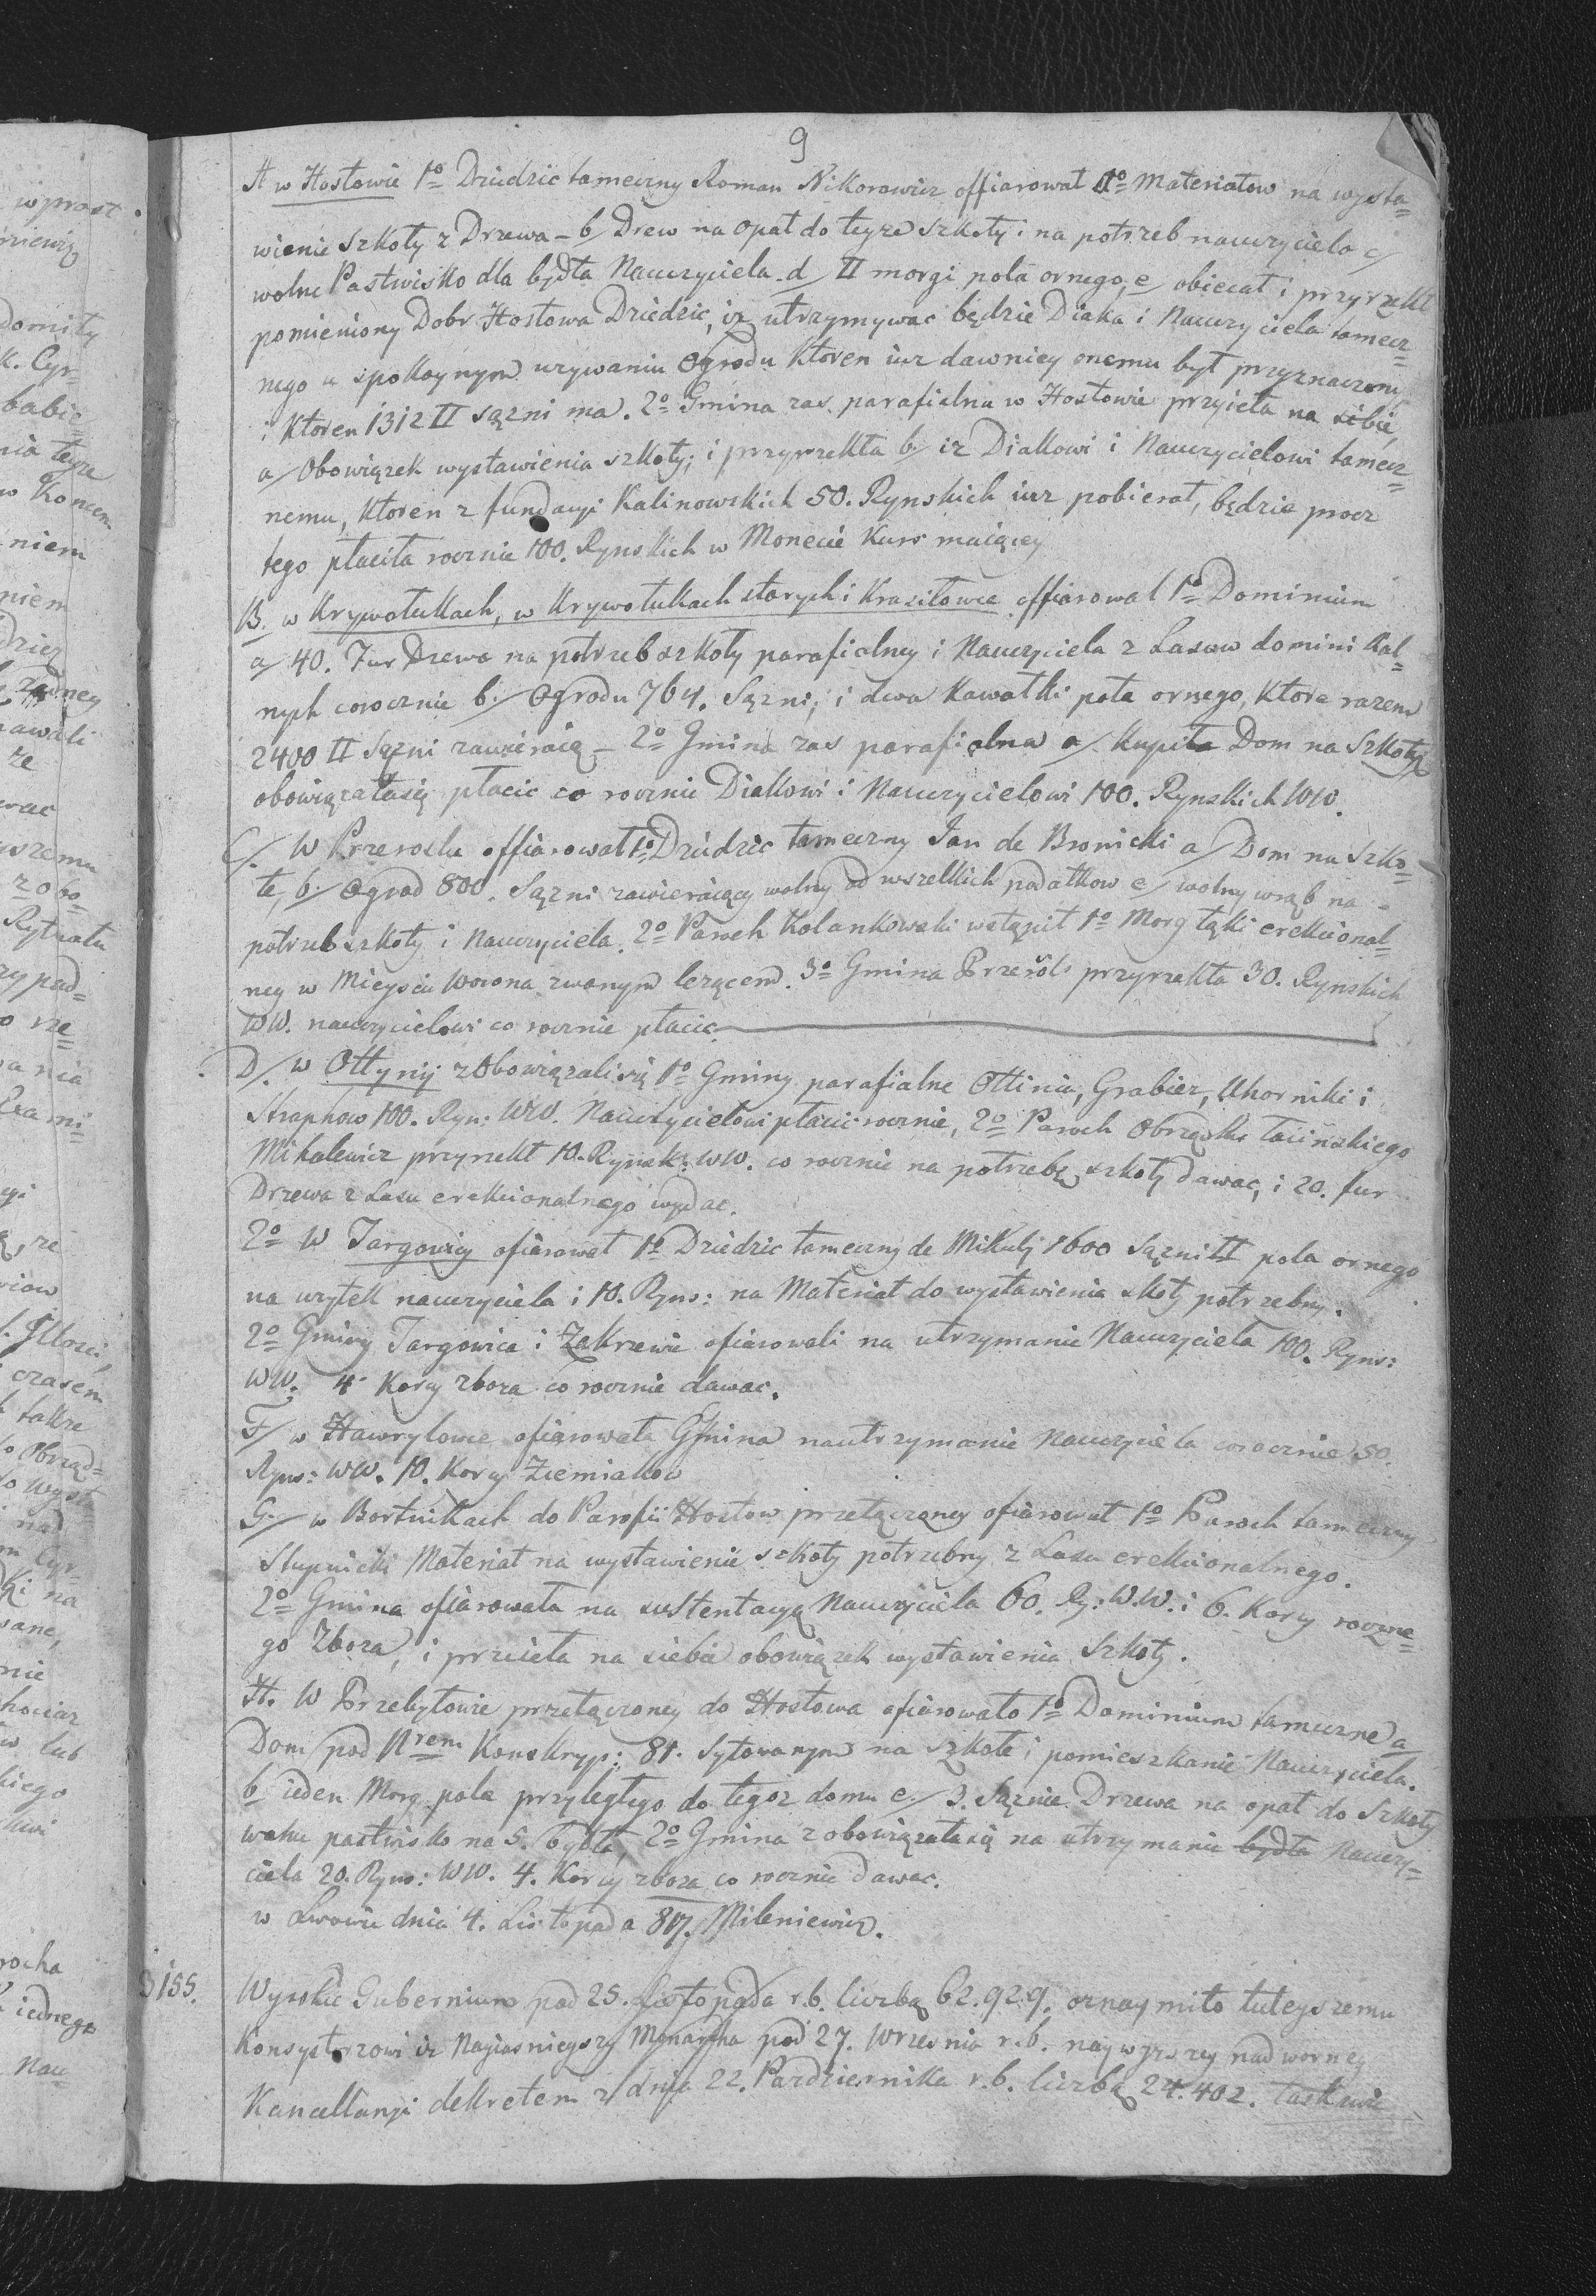 9
A w Hostowie 1º Dziedzic tameczny Roman Nikorowicz offiarował 1º Materiałow na wysta=
wienie szkoły z Drzewa – b/ Drew na opał do teyze szkoły i na potrzeb nauczyciela c/
wolne Pastwisko dla bydła Nauczyciela d/ II morgi pola ornego, e/ obiecał i przyrzekł
pomieniony Dobr Hostowa Dziedzic, iz utrzymywac będzie Diaka i Nauczyciela tamecz=
nego w spokoynym uzywaniu Ogrodu ktoren iuz dawniey onemu był przyznaczony
i ktoren 1312 II sązni ma. 2º Gmina zas parafialna w Hostowie przyieła na sibie
a/ Obowiązek wystawienia szkoły; i przyrzekła b/ iz Diakowi i Nauczycielowi tamecz=
nemu, ktoren z fundacyi Kalinowskich 50. Rynskich iuz pobierał, będzie procz
tego płaciła rocznie 100. Rynskich w Monecie kurs maiącey
B. w Krywotułkach, w Krywotułkach starych i Krasiłowce offiarował 1º Dominium
a/ 40. Fur Drzewa na potrzeb szkoły parafialney i Nauczyciela z Lasow domini kal=
nych corocznie b./ Ogrodu 764. Sązni, i dwa kawałki pola ornego, ktore razem
2400 II Sązni zawieraią – 2º Gmina zas parafialna a/ kupiła Dom na Szkołę
obowiązałasię płacic co rocznie Diakowi i Nauczycielowi 100. Rynskich WW.
C/. W Przerosłu offiarował 1º Dziedzic tameczny Jan de Bronicki a/ Dom na Szko=
łe, b./ Ogrod 800. Sązni zawieraiący wolny od wszelkich podatkow c/ wolny wrąb na
potrzeb szkoły i Nauczyciela. 2º Paroch Kolankowski wstąpił 1º Morg łąki erekcional=
ney w Mieyscu Worona zwanym lezącem. 3º Gmina Przerosl przyrzekła 30. Rynskich
WW. nauczycielowi co rocznie płacic
D/. w Ottynij zobowiązali się 1º Gminy parafialne Ottinia, Grabicz, Uhorniki i
Strapkow 100. Ryn: WW. Nauczycielowi płacic rocznie, 2º Paroch Obrządku łacińskiego
Mikalewicz przyrzekł 10. Rynsk: WW. co rocznie na potrzebę szkoły dawac, i 20. fur
Drzewa z Lasu erekcionalnego wydac.
2º W Targowicy ofiarował 1º Dziedzic tameczny de Mikuly 1600 Sązni II pola ornego
na uzytek nauczyciela i 10. Ryns: na Materiał do wystawienia skoły potrzebny.
2º Gminy Targowica i Zakrzewie ofiarowali na utrzymanie Nauczyciela 100. Ryns:
WW. 4 Korcy zboza co rocznie dawac.
F/ w Hawrylowce ofiarowała Gmina na utrzymanie Nauczyciela corocznie 50.
Ryns: WW. 10. Korcy Ziemiakow
G./ w Bortnikach do Parafii Hostow przełączoney ofiarował 1º Paroch tameczny
Słupnicki Materiał na wystawienie szkoły potrzebny z Lasu erekcionalnego.
2º Gmina ofiarowała na sustentacyą Nauczyciela 60. Ry: W.W. i 6. Korcy roczne=
go Zboza, i przieła na siebie obowiązek wystawienia Szkoły.
H. W Przebyłowie przełączoney do Hostowa ofiarowało 1º Dominium tameczne a
Dom pod Nrem Konskryp: 81. sytowanym na szkołe i pomieszkanie Nauczyciela.
b ieden Morg pola przyległego do tegoz domu c./ 3. Sąznie Drzewa na opał do Szkoły
wolne pastwisko na 5. bydła, 2º Gmina zobowiązałasię na utrzymanie bydła Nauczy=
ciela 20. Ryns: WW. 4. Korcy zboza co rocznie dawac.
w Lwowie dnia 4. Listopada 817. Mileniewicz.
3155. Wysokie Gubernium pod 25. Listopada r.b. liczbą 62.929. oznaymiło tuteyszemu
Konsystorzowi iz Nayiasnieyszy Monarcha pod 27. Wrzesnia r.b. naywyzszey nadworney
Kancellaryi dekretem z dnia 22. Pazdziernika r.b. liczbą 24.402. łaskawie